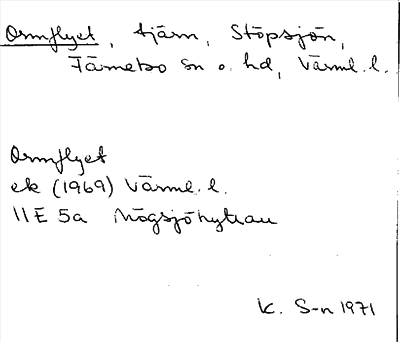 Ormflyet, tjärn, Stöpsjön,
Färnebo sn o. hd, Värml. l.
Ormflyet
ek (1969) Värml. l.
11E 5a Högsjöhyttan
K. S-n 1971